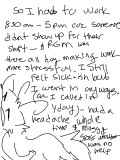 So I had to work
8:30am - 5pm cuz someone
didn't show up for their
shift - & RGM was
there all day making work
more stressful, I still
felt sick-ish but
I went in anyways
(as I called in
Yday) - had a
headache whole
time &
was no
help